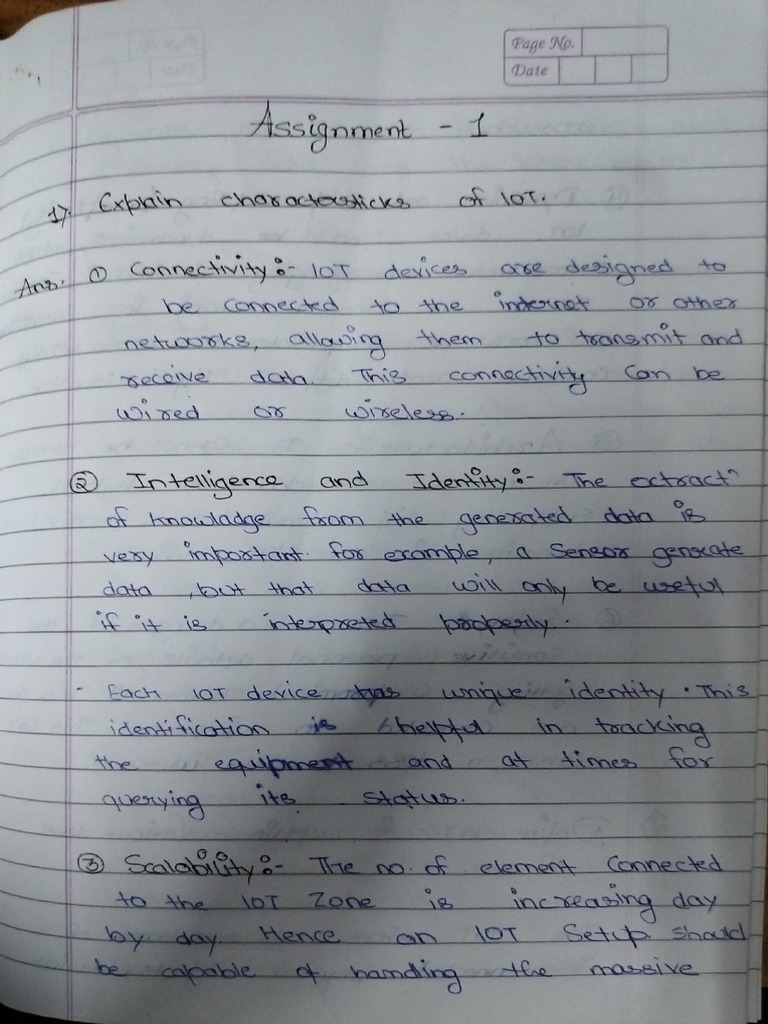 Page No.
Date
Assignment - 1
1). Explain charactersticks of IOT.
Ans. ① Connectivity :- IOT devices are designed to
be connected to the internet or other
networks, allowing them to transmit and
receive data. This connectivity can be
wired or wireless.
② Intelligence and Identity :- The extractn
of knowladge from the generated data is
very important. for example, a sensor generate
data , but that data will only be useful
if it is interpreted properly.
- Each IOT device has unique identity. This
identification is helpful in tracking
the equipment and at times for
querying its status.
③ Scalability :- The no. of element connected
to the IOT Zone is increasing day
by day Hence an IOT Setup should
be capable of handling the massive